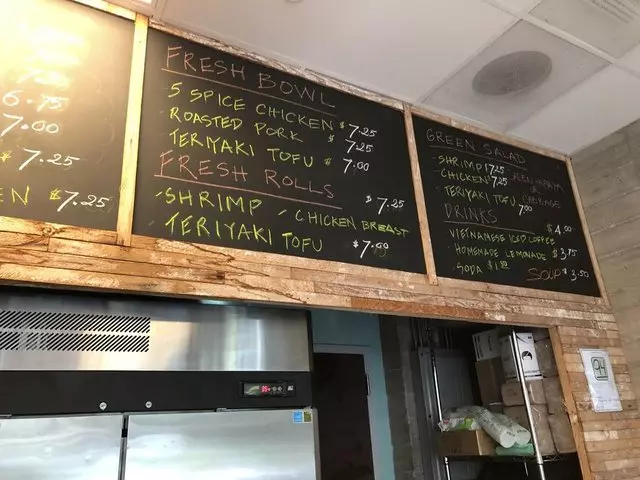 6.75
7.00
7.25
EN $7.25
FRESH BOWL
5 SPICE CHICKEN $7.25
ROASTED PORK $7.25
TERIYAKI TOFU $7.00
FRESH ROLLS
- SHRIMP - CHICKEN BREAST $7.25
TERIYAKI TOFU
GREEN SALAD
- SHRIMP 7.25
- CHICKEN 7.25
- TERIYAKI TOFU 7.00
DRINKS
VIETNAMESE ICED COFFEE $4.00
HOMEMADE LEMONADE $3.75
SODA
SOUP $3.50